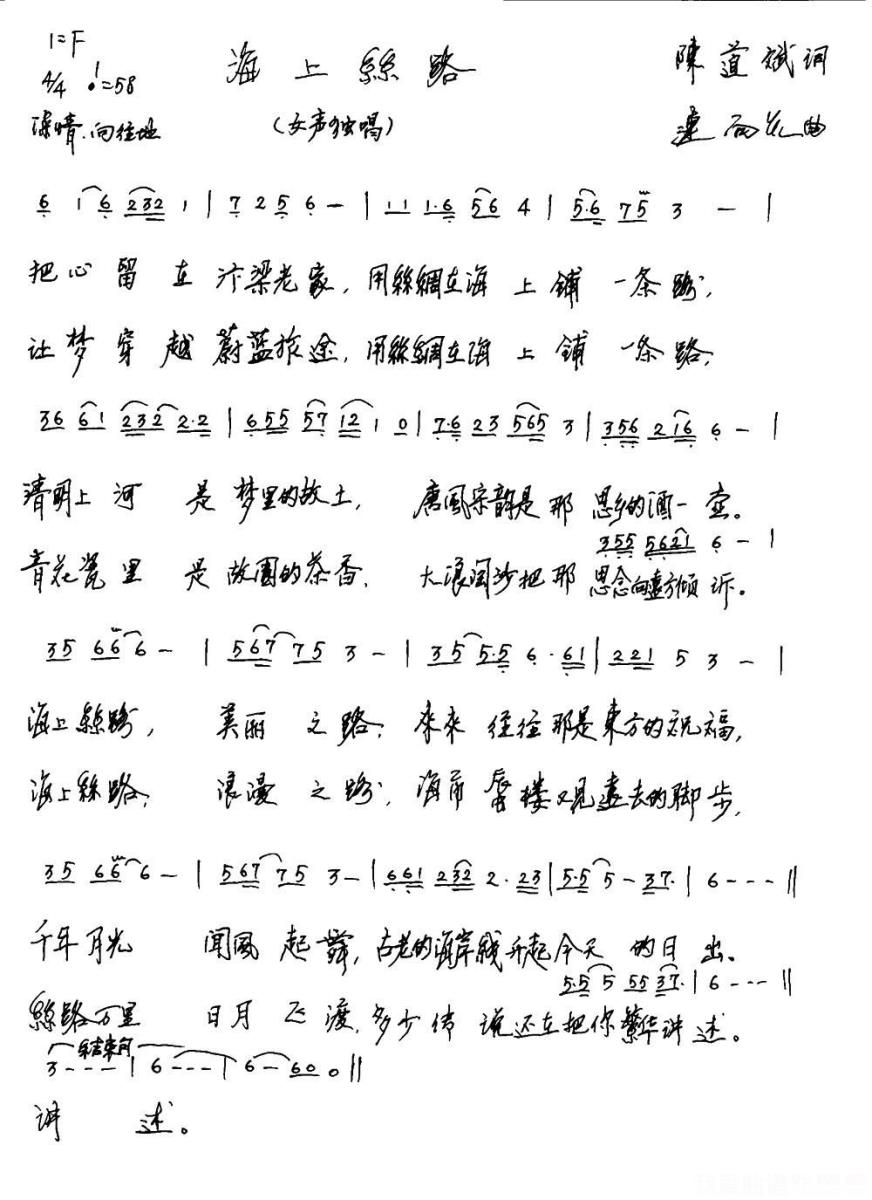 1=F
海上絲路
陳道斌词
4/4 ♩=58
深情.向往地
(女声独唱)
曲
6 1 6 232 1 | 7 2 5 6 - | 11 1·6 56 4 | 5·6 75 3 - |
把心留在汴梁老家,用絲綢在海上铺一条路,
让梦穿越蔚蓝旅途,用絲綢在海上铺一条路,
36 61 232 2·2 | 655 57 12 1 0 | 7·6 23 565 3 | 356 216 6 - |
清明上河是梦里的故土,唐風宋韵是那思乡的酒一壶。
355 5621 6 - |
青花瓷里是故園的茶香,大浪淘沙把那思念向遠方倾诉。
35 66 6 - | 567 75 3 - | 35 5·5 6· 61 | 221 5 3 - |
海上絲路,美丽之路,來來往往那是東方的祝福,
海上絲路,浪漫之路,海市蜃楼又见遠去的脚步,
35 66 6 - | 567 75 3 - | 661 232 2· 23 | 5·5 5 - 37· | 6 - - - ||
千年月光闻風起舞,古老的海岸线升起今天的日出。
5·5 5 55 37· | 6 - - - ||
絲路万里日月飞渡,多少传说还在把你繁华讲述。
结束句
3 - - - | 6 - - - | 6 - 60 0 ||
讲述。